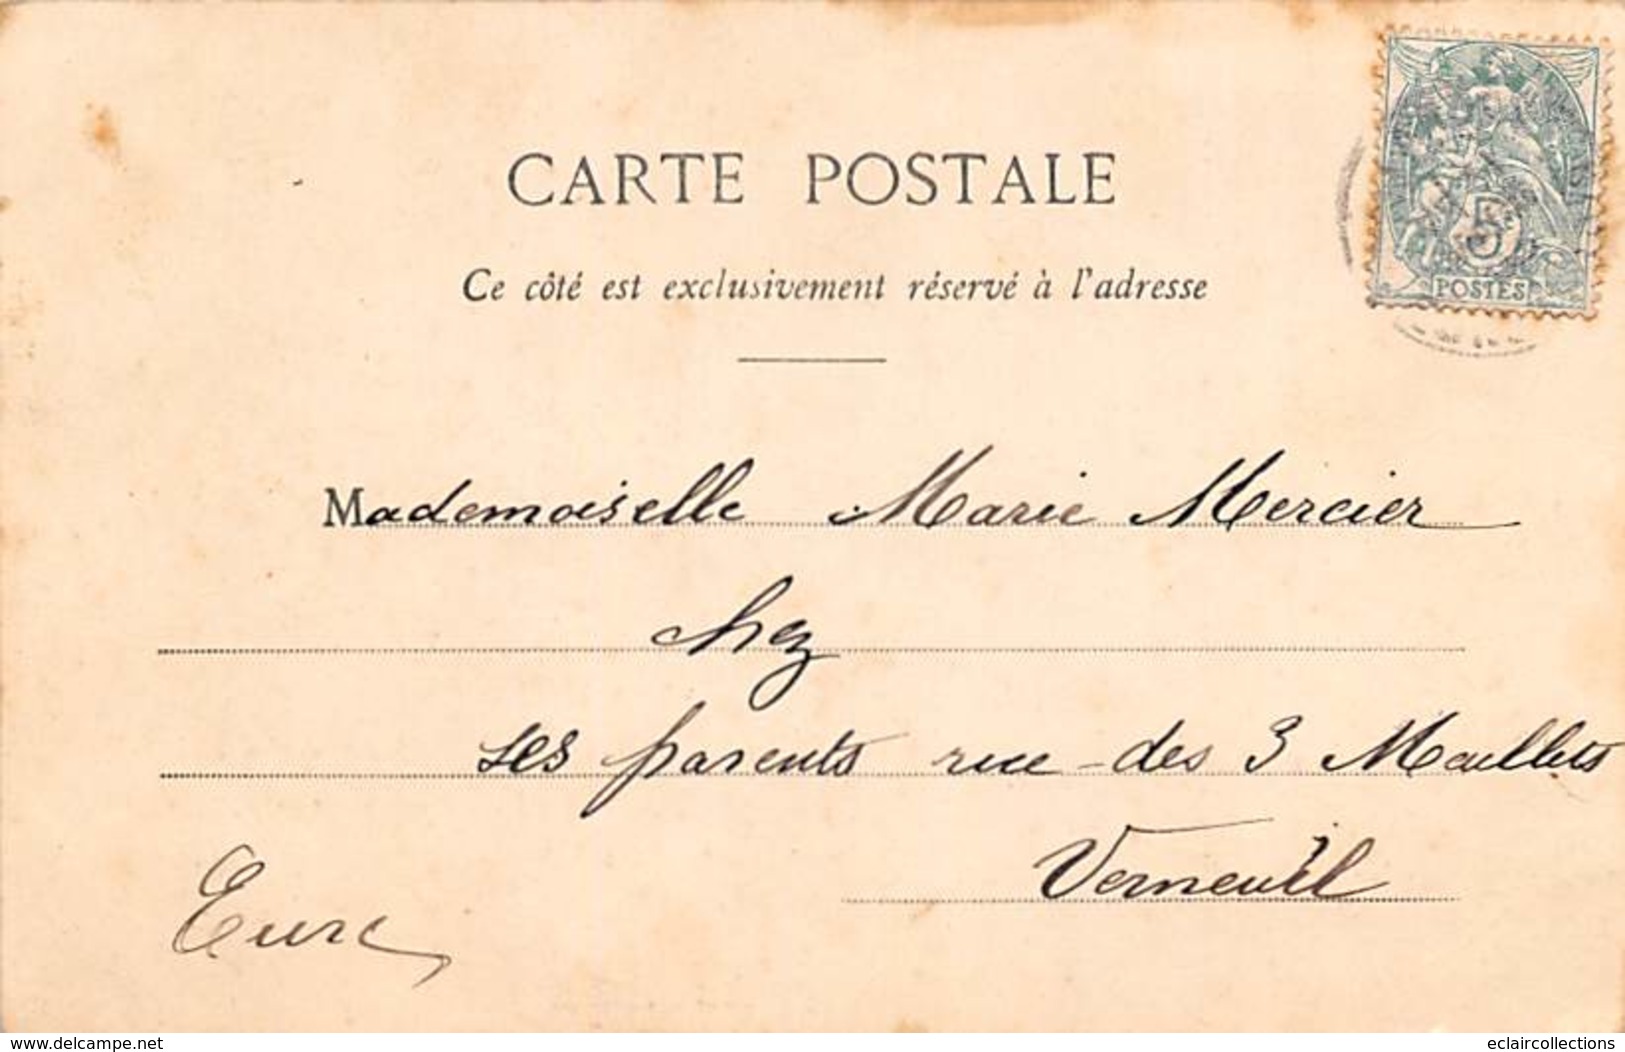 CARTE POSTALE
Ce côté est exclusivement réservé à l'adresse
5
POSTES
Mademoiselle Marie Mercier
chez
ses parents rue des 3 Maillets
Verneuil
Eure
www.delcampe.net
eclaircollections